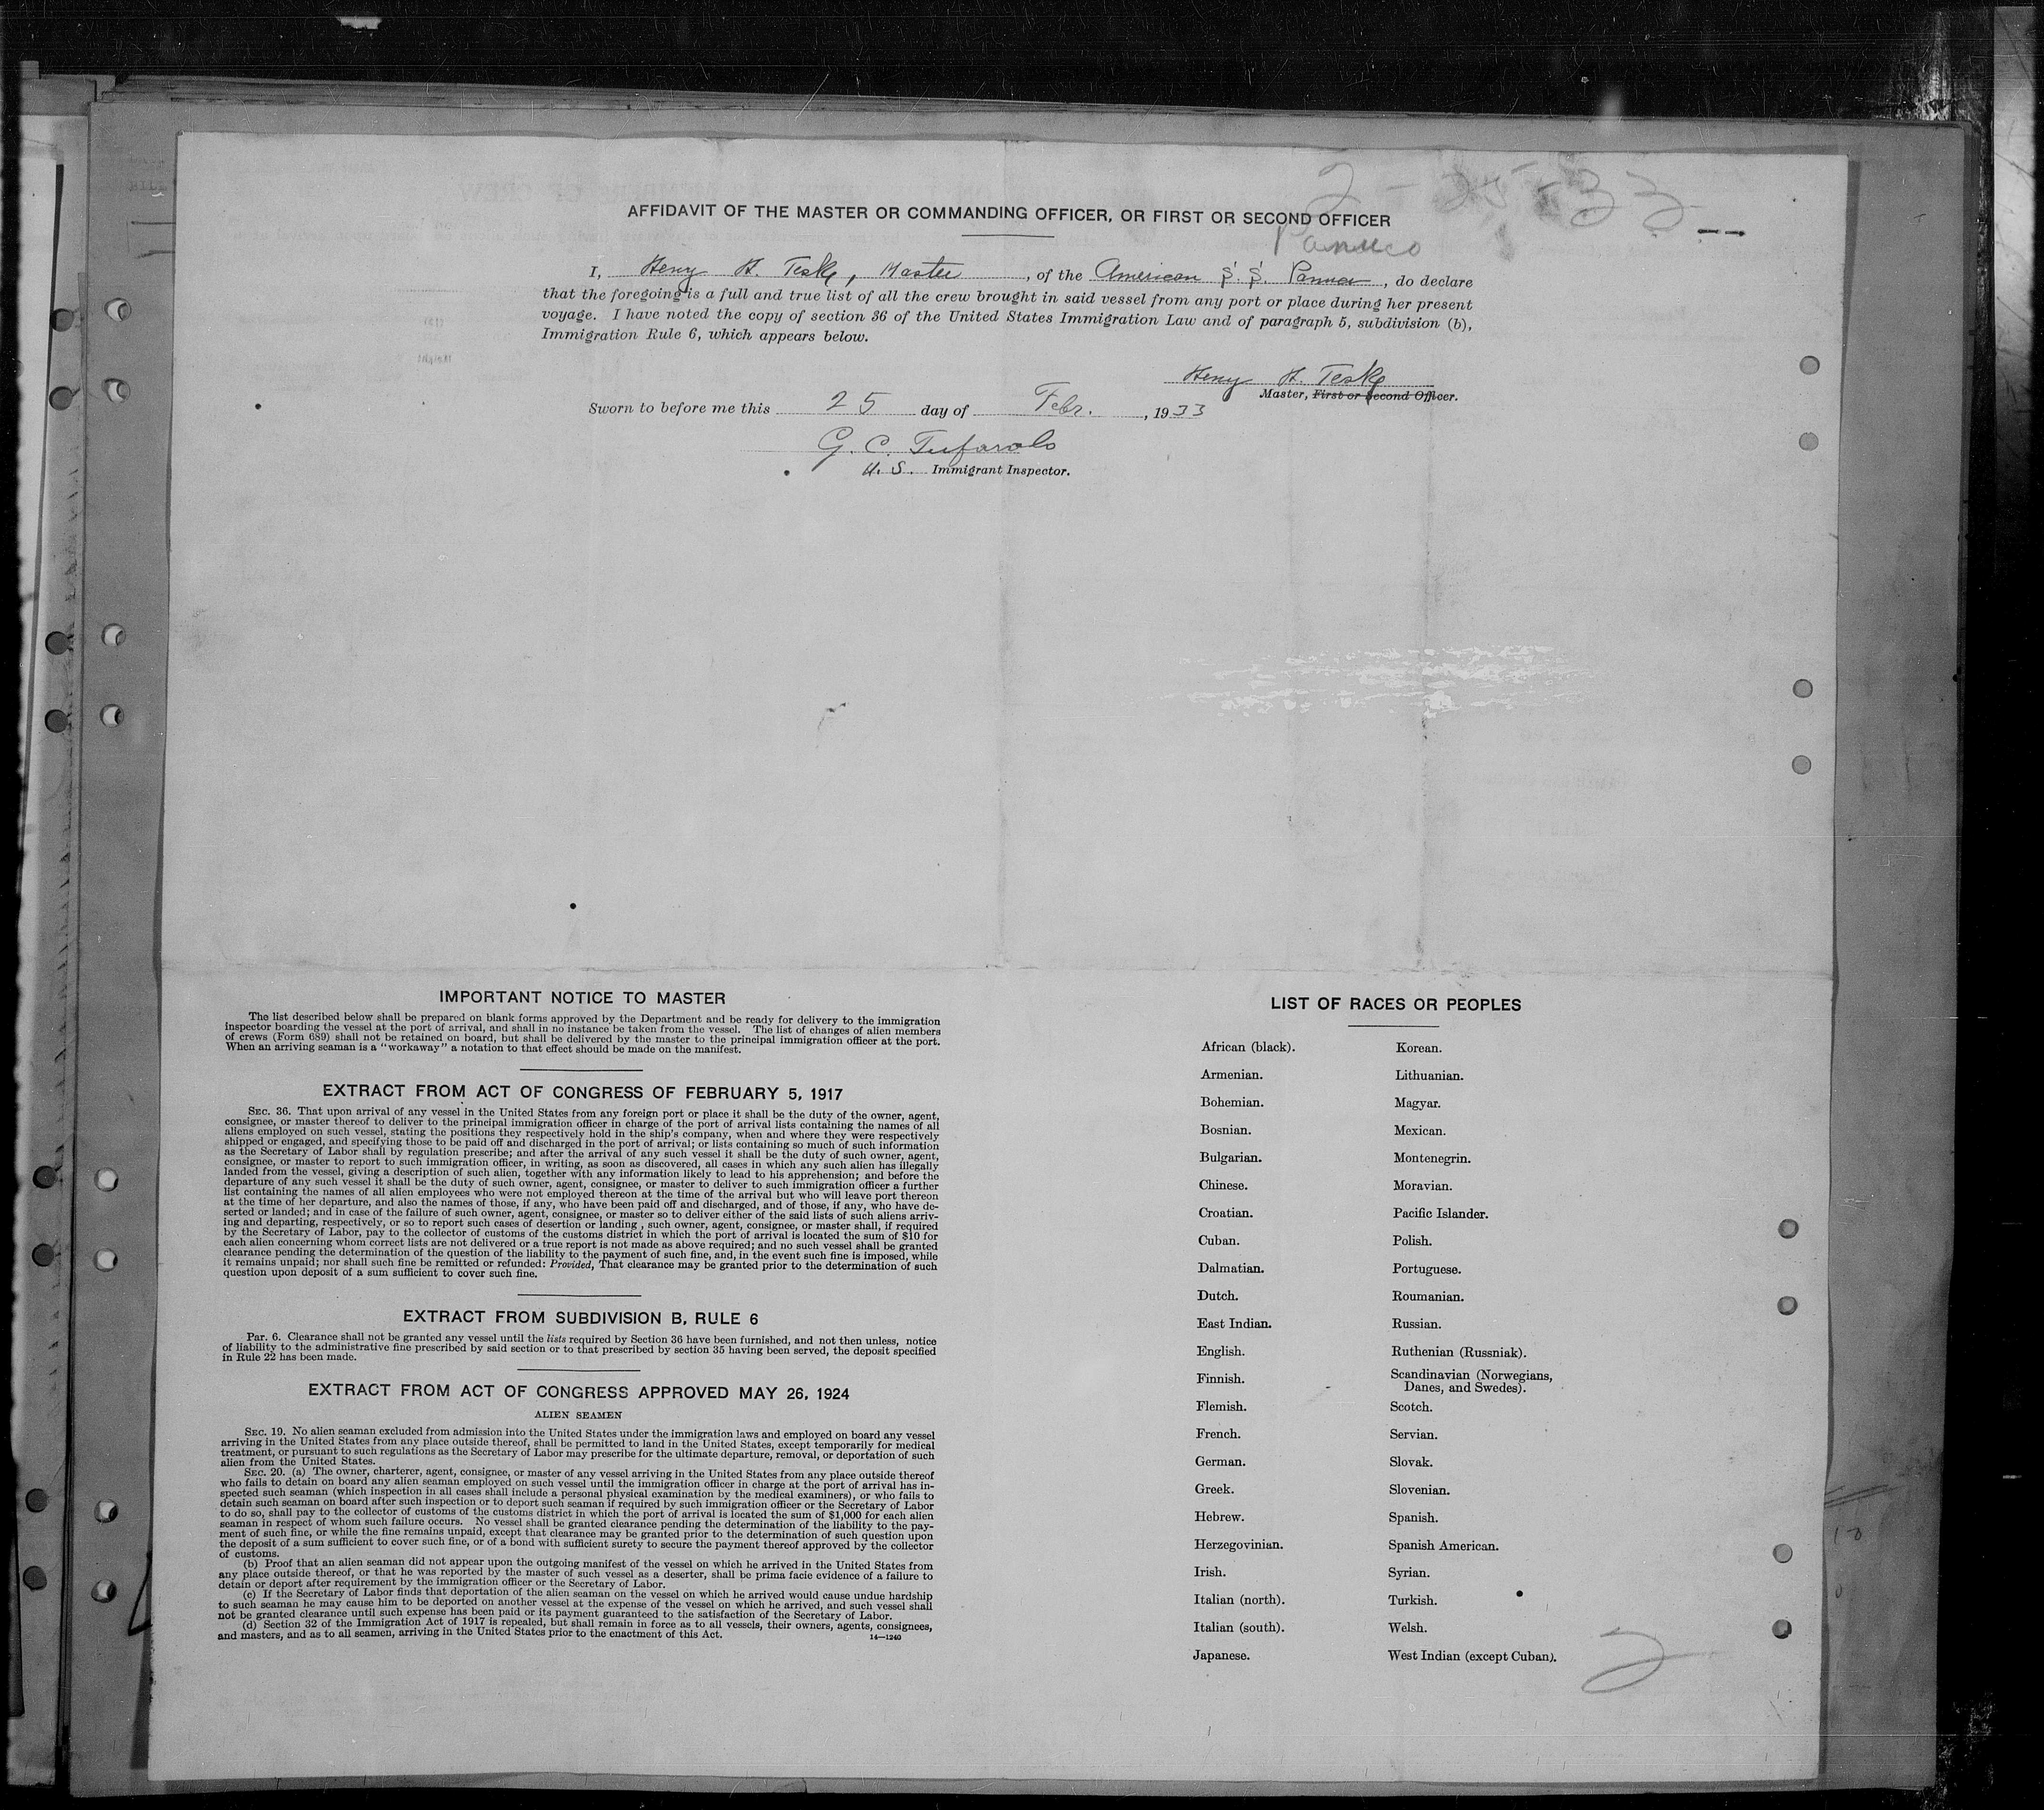 2-25-33
AFFIDAVIT OF THE MASTER OR COMMANDING OFFICER, OR FIRST OR SECOND OFFICER
Panuco
I, Heny H. Teske, Master, of the American S.S. Panuco, do declare
that the foregoing is a full and true list of all the crew brought in said vessel from any port or place during her present
voyage. I have noted the copy of section 36 of the United States Immigration Law and of paragraph 5, subdivision (b),
Immigration Rule 6, which appears below.
Heny H. Teske
Master, First or Second Officer.
Sworn to before me this 25 day of Febr., 1933
G. C.
U. S. Immigrant Inspector.
IMPORTANT NOTICE TO MASTER
The list described below shall be prepared on blank forms approved by the Department and be ready for delivery to the immigration
inspector boarding the vessel at the port of arrival, and shall in no instance be taken from the vessel. The list of changes of alien members
of crews (Form 689) shall not be retained on board, but shall be delivered by the master to the principal immigration officer at the port.
When an arriving seaman is a "workaway" a notation to that effect should be made on the manifest.
EXTRACT FROM ACT OF CONGRESS OF FEBRUARY 5, 1917
SEC. 36. That upon arrival of any vessel in the United States from any foreign port or place it shall be the duty of the owner, agent,
consignee, or master thereof to deliver to the principal immigration officer in charge of the port of arrival lists containing the names of all
aliens employed on such vessel, stating the positions they respectively hold in the ship's company, when and where they were respectively
shipped or engaged, and specifying those to be paid off and discharged in the port of arrival; or lists containing so much of such information
as the Secretary of Labor shall by regulation prescribe; and after the arrival of any such vessel it shall be the duty of such owner, agent,
consignee, or master to report to such immigration officer, in writing, as soon as discovered, all cases in which any such alien has illegally
landed from the vessel, giving a description of such alien, together with any information likely to lead to his apprehension; and before the
departure of any such vessel it shall be the duty of such owner, agent, consignee, or master to deliver to such immigration officer a further
list containing the names of all alien employees who were not employed thereon at the time of the arrival but who will leave port thereon
at the time of her departure, and also the names of those, if any, who have been paid off and discharged, and of those, if any, who have de-
serted or landed; and in case of the failure of such owner, agent, consignee, or master so to deliver either of the said lists of such aliens arriv-
ing and departing, respectively, or so to report such cases of desertion or landing , such owner, agent, consignee, or master shall, if required
by the Secretary of Labor, pay to the collector of customs of the customs district in which the port of arrival is located the sum of $10 for
each alien concerning whom correct lists are not delivered or a true report is not made as above required; and no such vessel shall be granted
clearance pending the determination of the question of the liability to the payment of such fine, and, in the event such fine is imposed, while
it remains unpaid; nor shall such fine be remitted or refunded: Provided, That clearance may be granted prior to the determination of such
question upon deposit of a sum sufficient to cover such fine.
EXTRACT FROM SUBDIVISION B, RULE 6
Par. 6. Clearance shall not be granted any vessel until the lists required by Section 36 have been furnished, and not then unless, notice
of liability to the administrative fine prescribed by said section or to that prescribed by section 35 having been served, the deposit specified
in Rule 22 has been made.
EXTRACT FROM ACT OF CONGRESS APPROVED MAY 26, 1924
ALIEN SEAMEN
SEC. 19. No alien seaman excluded from admission into the United States under the immigration laws and employed on board any vessel
arriving in the United States from any place outside thereof, shall be permitted to land in the United States, except temporarily for medical
treatment, or pursuant to such regulations as the Secretary of Labor may prescribe for the ultimate departure, removal, or deportation of such
alien from the United States.
SEC. 20. (a) The owner, charterer, agent, consignee, or master of any vessel arriving in the United States from any place outside thereof
who fails to detain on board any alien seaman employed on such vessel until the immigration officer in charge at the port of arrival has in-
spected such seaman (which inspection in all cases shall include a personal physical examination by the medical examiners), or who fails to
detain such seaman on board after such inspection or to deport such seaman if required by such immigration officer or the Secretary of Labor
to do so, shall pay to the collector of customs of the customs district in which the port of arrival is located the sum of $1,000 for each alien
seaman in respect of whom such failure occurs. No vessel shall be granted clearance pending the determination of the liability to the pay-
ment of such fine, or while the fine remains unpaid, except that clearance may be granted prior to the determination of such question upon
the deposit of a sum sufficient to cover such fine, or of a bond with sufficient surety to secure the payment thereof approved by the collector
of customs.
(b) Proof that an alien seaman did not appear upon the outgoing manifest of the vessel on which he arrived in the United States from
any place outside thereof, or that he was reported by the master of such vessel as a deserter, shall be prima facie evidence of a failure to
detain or deport after requirement by the immigration officer or the Secretary of Labor.
(c) If the Secretary of Labor finds that deportation of the alien seaman on the vessel on which he arrived would cause undue hardship
to such seaman he may cause him to be deported on another vessel at the expense of the vessel on which he arrived, and such vessel shall
not be granted clearance until such expense has been paid or its payment guaranteed to the satisfaction of the Secretary of Labor.
(d) Section 32 of the Immigration Act of 1917 is repealed, but shall remain in force as to all vessels, their owners, agents, consignees,
and masters, and as to all seamen, arriving in the United States prior to the enactment of this Act.
14—1240
LIST OF RACES OR PEOPLES
African (black).
Armenian.
Bohemian.
Bosnian.
Bulgarian.
Chinese.
Croatian.
Cuban.
Dalmatian.
Dutch.
East Indian.
English.
Finnish.
Flemish.
French.
German.
Greek.
Hebrew.
Herzegovinian.
Irish.
Italian (north).
Italian (south).
Japanese.
Korean.
Lithuanian.
Magyar.
Mexican.
Montenegrin.
Moravian.
Pacific Islander.
Polish.
Portuguese.
Roumanian.
Russian.
Ruthenian (Russniak).
Scandinavian (Norwegians,
Danes, and Swedes).
Scotch.
Servian.
Slovak.
Slovenian.
Spanish.
Spanish American.
Syrian.
Turkish.
Welsh.
West Indian (except Cuban).
2